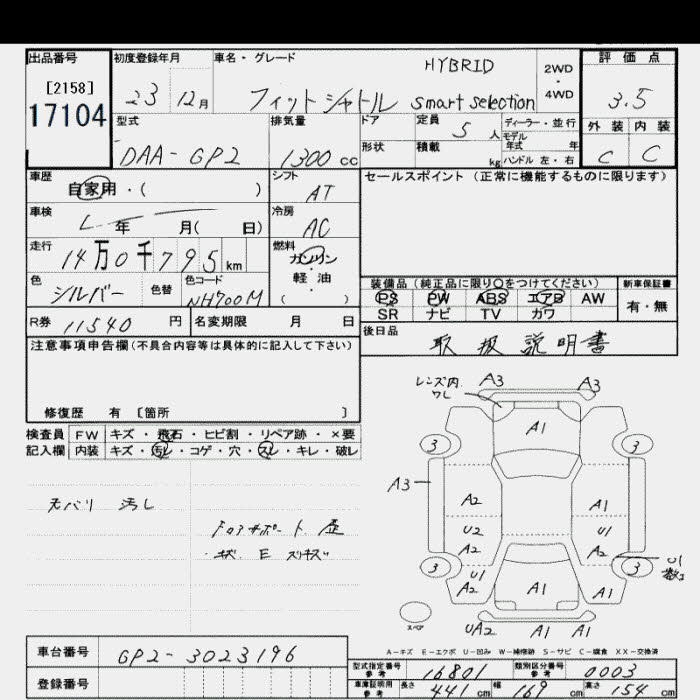 出品番号
[2158]
17104
初度登録年月
23 12月
車名・グレード
HYBRID
フィットシャトル smart selection
2WD
4WD
評価点
3.5
外装 内装
C C
型式
DAA-GP2
排気量
1300 cc
ドア
形状
定員 5 人
積載 kg
ディーラー・並行
モデル年式 年
ハンドル 左・右
車歴
自家用・( )
シフト
AT
セールスポイント (正常に機能するものに限ります)
車検
年 月( 日)
冷房
AC
走行
14万0千795km
燃料
ガソリン
・
軽油
( )
色
シルバー
色替
色コード
NH700M
装備品 (純正品に限り○をつけてください)
新車保証書
PS PW ABS エアB AW
SR ナビ TV カワ
有・無
R券 11540 円
名変期限 月 日
後日品
取扱説明書
注意事項申告欄 (不具合内容等は具体的に記入して下さい)
修復歴 有 [箇所 ]
検査員
記入欄
FW キズ・飛石・ヒビ割・リペア跡・×要
内装 キズ・汚レ・コゲ・穴・スレ・キレ・破レ
汚し
レンズ内
ワレ
A3 A3
A1
3 3
A3
A2 A1
U2 U1
A2 A2
3 3
U1
U1
A2 A1 A2
UA2 A1 A1
スペア
A-キズ E-エクボ U-凹み W-補修跡 S-サビ C-腐食 XX-交換済
車台番号 GP2-3023196
登録番号
型式指定番号
参考
16801
類別区分番号
参考
0003
車庫証明用
参考
長さ 441 cm 幅 169 cm 高さ 154 cm